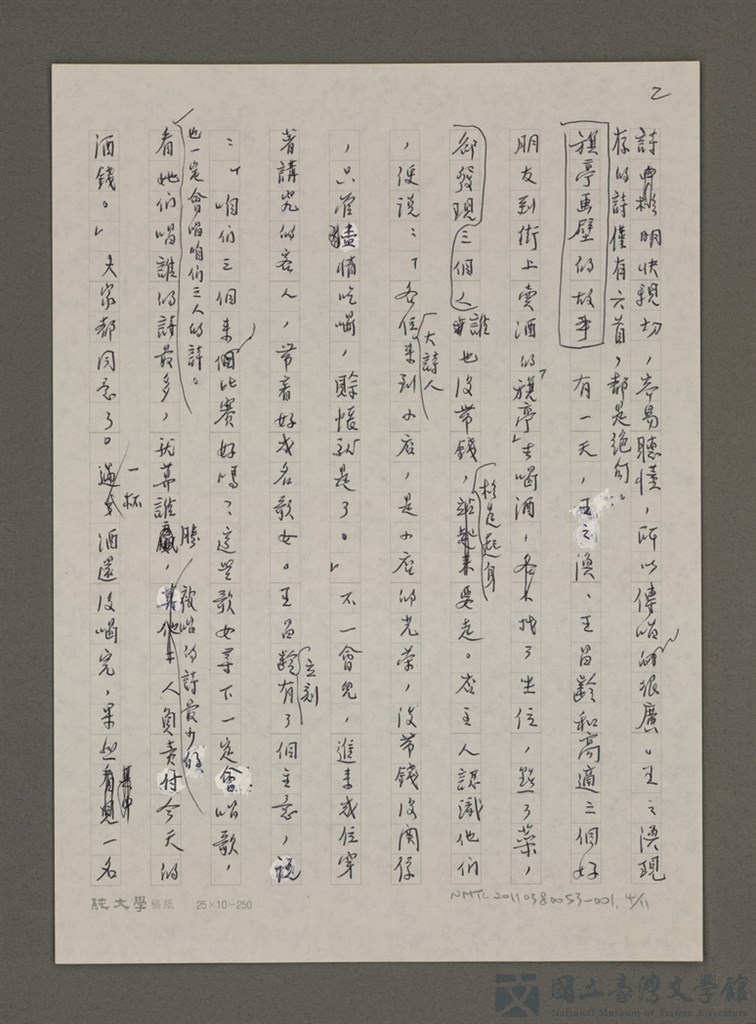 2
詩典雅明快親切，容易聽懂，所以傳唱的很廣。王之渙現
存的詩僅有六首，都是絕句。
旗亭画壁的故事 有一天，王之渙、王昌齡和高適三個好
朋友到街上賣酒的「旗亭」去喝酒，各人找了坐位，點了菜，
卻發現三個人誰也沒帶錢，於是起身要走。店主人認識他們
，便說：「各位大詩人來到小店，是小店的光荣，沒带錢沒関係
，只管盡情吃喝，賒帳就是了。」不一會兒，進來幾位穿
著講究的客人，带着好幾名歌女。王昌齡立刻有了個主意，說
：「咱们三個來個比賽好嗎？這些歌女等下一定會唱歌，
也一定會唱咱们三人的詩。
看她们唱誰的詩最多，就算誰勝，被唱的詩最少的人負責付今天的
酒錢。」大家都同意了。一杯酒還沒喝完，果然其中一名
純文學稿紙 25×10=250
NMTL20110380053-001, 4/11
國立臺灣文學館
National Museum of Taiwan Literature